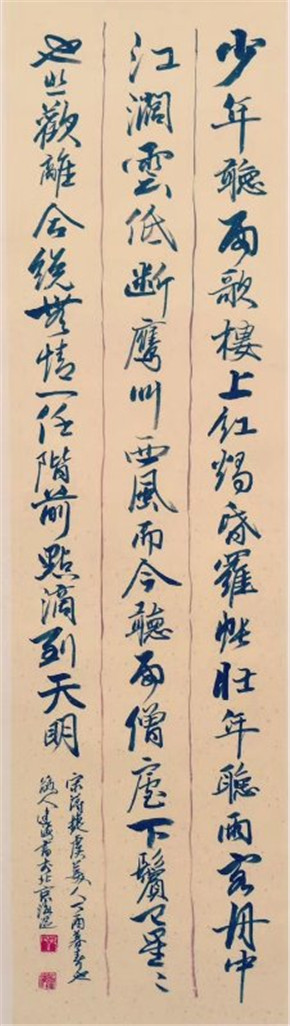 少年聽雨歌樓上红燭昏羅帐壮年聽雨客舟中
江濶雲低断雁叫西風而今聽雨僧廬下鬓已星〻
也悲歡離合總無情一任階前點滴到天明
宋蒋捷虞美人丁酉暮春
人書於北京